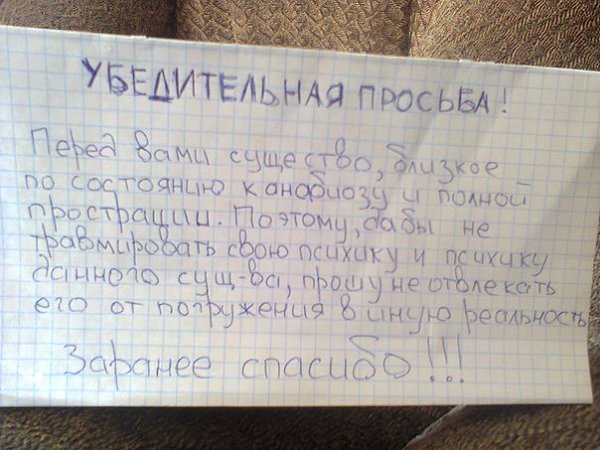 УБЕДИТЕЛЬНАЯ ПРОСЬБА!
Перед вами существо, близкое
по состоянию к анабиозу и полной
прострации. Поэтому, дабы не
травмировать свою психику и психику
данного сущ-ва, прошу не отвлекать
его от погружения в иную реальность
Заранее спасибо!!!